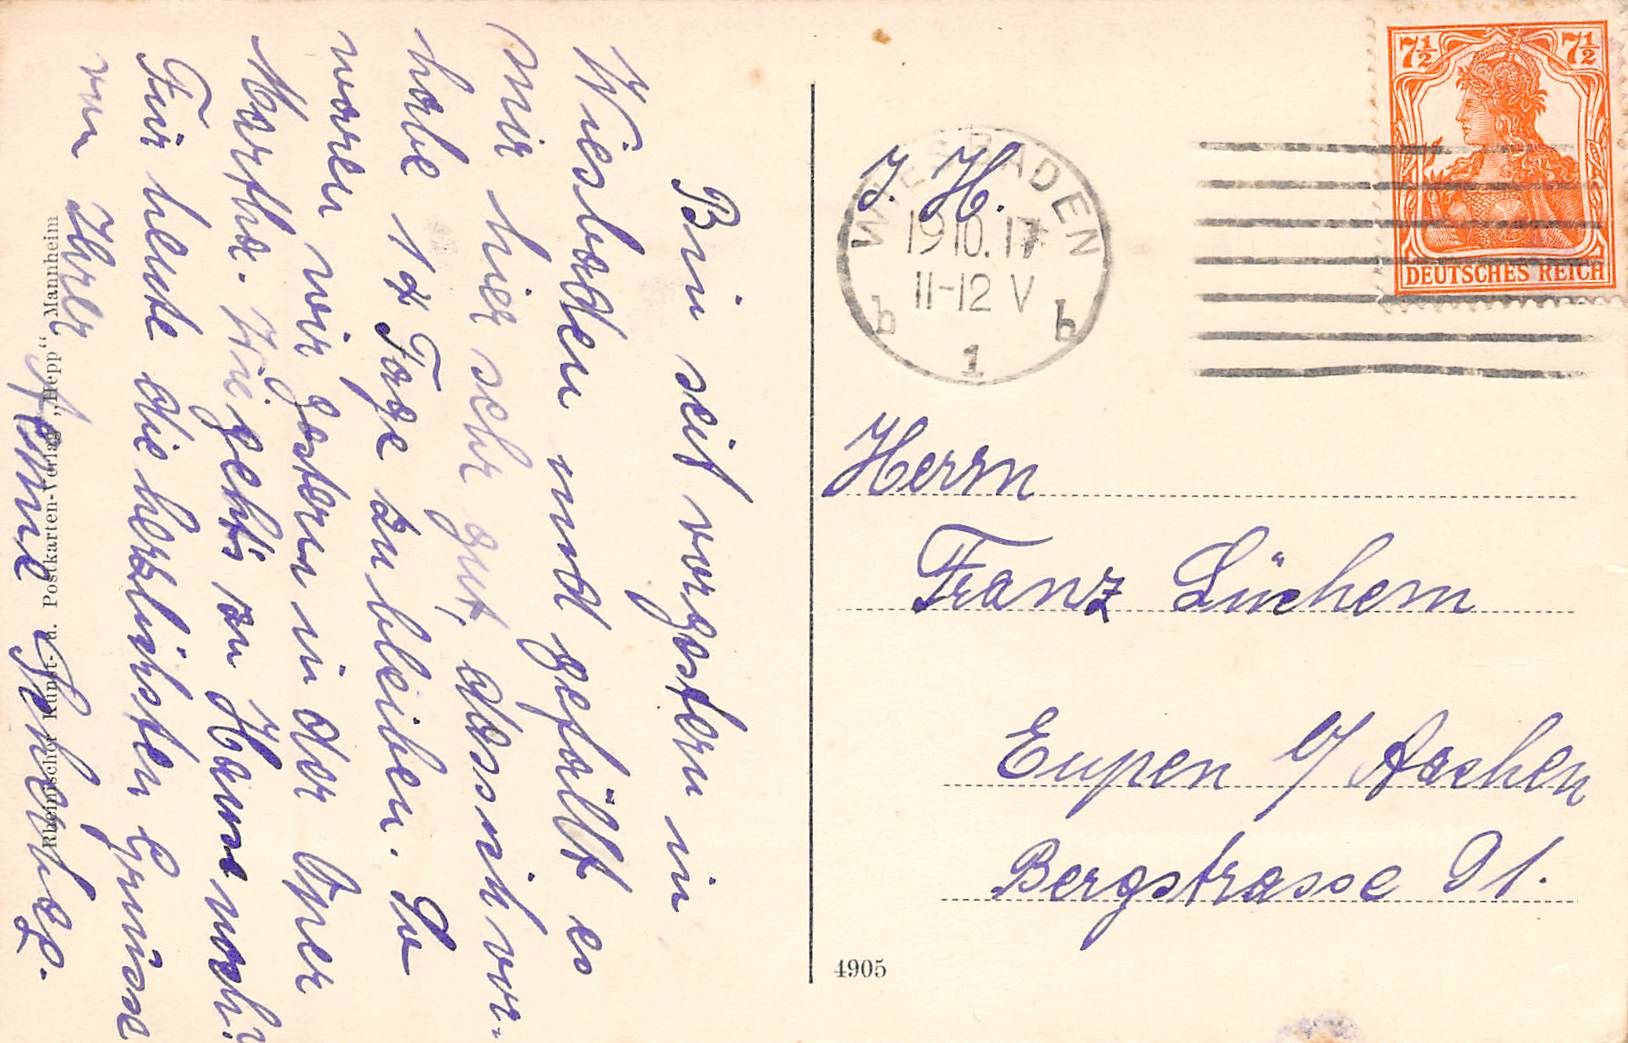 Bin seit vorgestern in
Wiesbaden und gefällt es
mir hier sehr gut, dass ich vor-
habe 14 Tage zu bleiben. So
waren wir gestern in der Oper
Martha. Wie geht's zu Hause noch?
Für heute die herzlichsten Grüsse
von Ihrer
Änne
Rheinischer Kunst- u. Postkarten-Verlag „Hepp“ Mannheim
J. H.
WIESBADEN
19 10. 17
11-12 V
b 1 b
7½ 7½
DEUTSCHES REICH
Herrn
Franz Lüchem
Eupen b/ Aachen
Bergstrasse 91.
4905